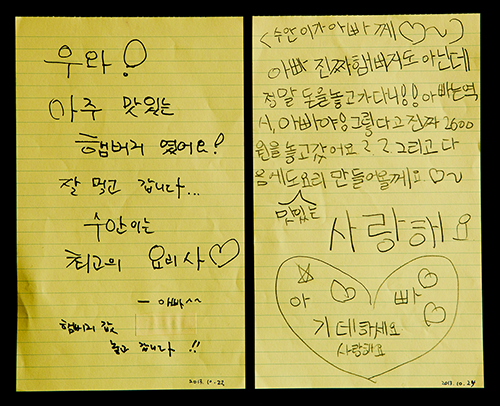 우와!
아주 맛있는
햄버거 였어요!
잘 먹고 갑니다...
수안이는
최고의 요리사♡
- 아빠^^
햄버거 값
놓고 갑니다 !!
2013. 10. 22
<수안이가 아빠께♡~>
아빠 진짜햄버거도 아닌데
정말 돈을놓고가다니!! 아빠는역
시, 아빠야!! 그렇다고 진짜 2600
원을 놓고갔어요??그리고 다
음세도요리 만들어볼께요♡~
맛있는
사랑해요
아♡빠
기데하세요
사랑해요
2013. 10. 24